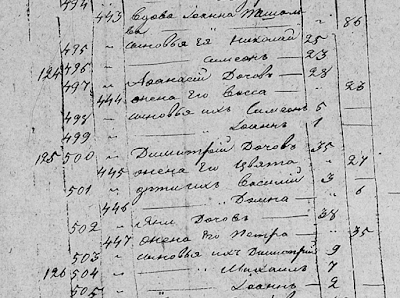 494
443 Вдова Іоанна Пашало
ва — " 86
495 " сыновья ея Николай 25
496 " Симеонъ — 23
124 497 " Афанасій Дочевъ — 28
444 жена его Васса — " 23
498 " сыновья ихъ Симеонъ 5
499 " " Іоаннъ 1
125 500 " Димитрій Дочовъ 35
445 жена его Цвята " 27
501 " дѣти ихъ Василій 3
446 " Домна — " 6
502 " Яни Дочовъ — 38
447 жена его Петра — " 35
503 " сыновья ихъ Димитрій 9
126 504 " " Михаилъ 7
505 " " Іоаннъ — 2